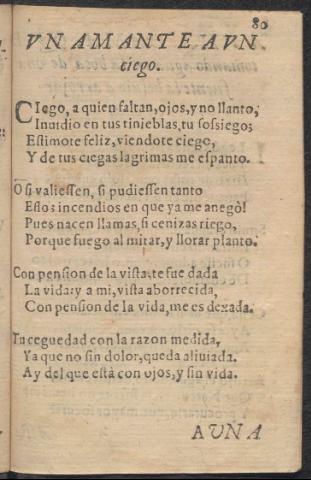 80
VN AMANTE A VN
ciego.
CIego, a quien faltan, ojos, y no llanto,
Inuidio en tus tinieblas, tu sossiego;
Estimote feliz, viendote ciego,
Y de tus ciegas lagrimas me espanto.
O si valiessen, si pudiessen tanto
Estos incendios en que ya me anegò!
Pues nacen llamas, si cenizas riego,
Porque fuego al mirar, y llorar planto.
Con pension de la vista, te fue dada
La vida: y a mi, vista aborrecida,
Con pension de la vida, me es dexada.
Tu ceguedad con la razon medida,
Ya que no sin dolor, queda aliuiada.
Ay del que està con ojos, y sin vida.
A VNA